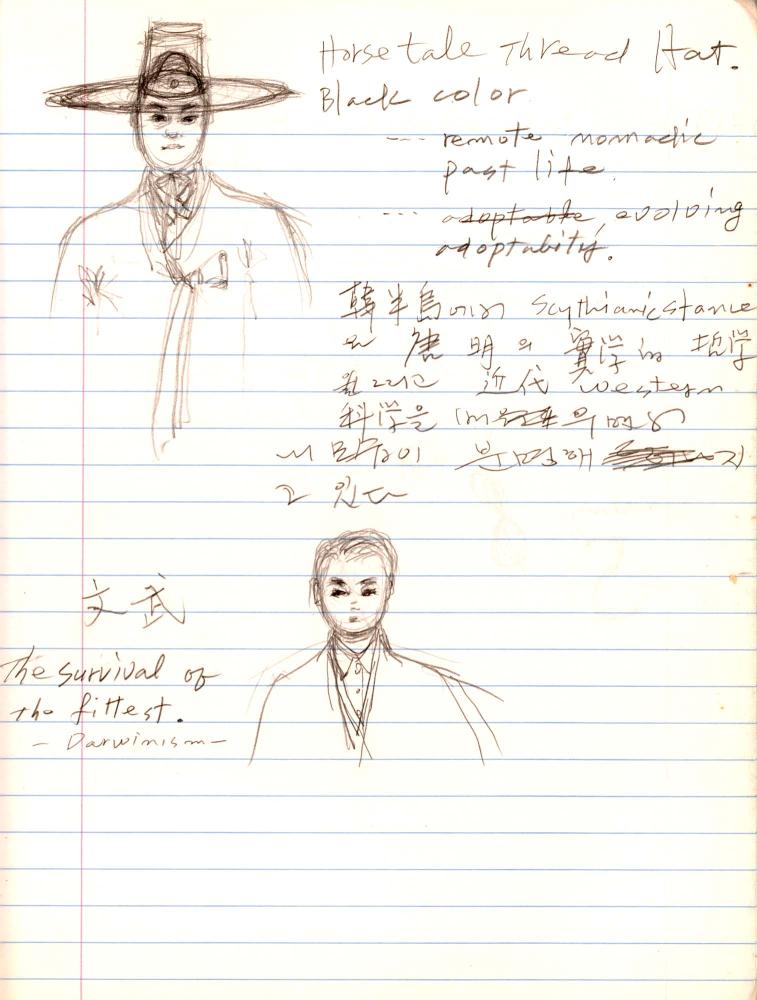 Horse tale Thread Hat.
Black color
--- remote nomadic
past life.
--- adoptable, evolving
adoptability.
韓半島에서 Scythianic stance
와 唐 明의 實学的 哲学
을 그리고 近代 western
科学을
이 분명해 지
고 있다
文武
The survival of
the fittest.
- Darwinism -